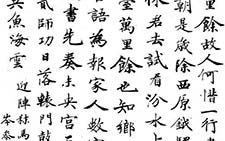 里餘故人何惜一行
朝是歲除西原驛
君去試看汾水上
臺萬里餘也知鄉
言語為報家人數
書先奏未央宮天
貳師功日落轅門鼓
兵魚海雲
迎陣秣馬
岑參